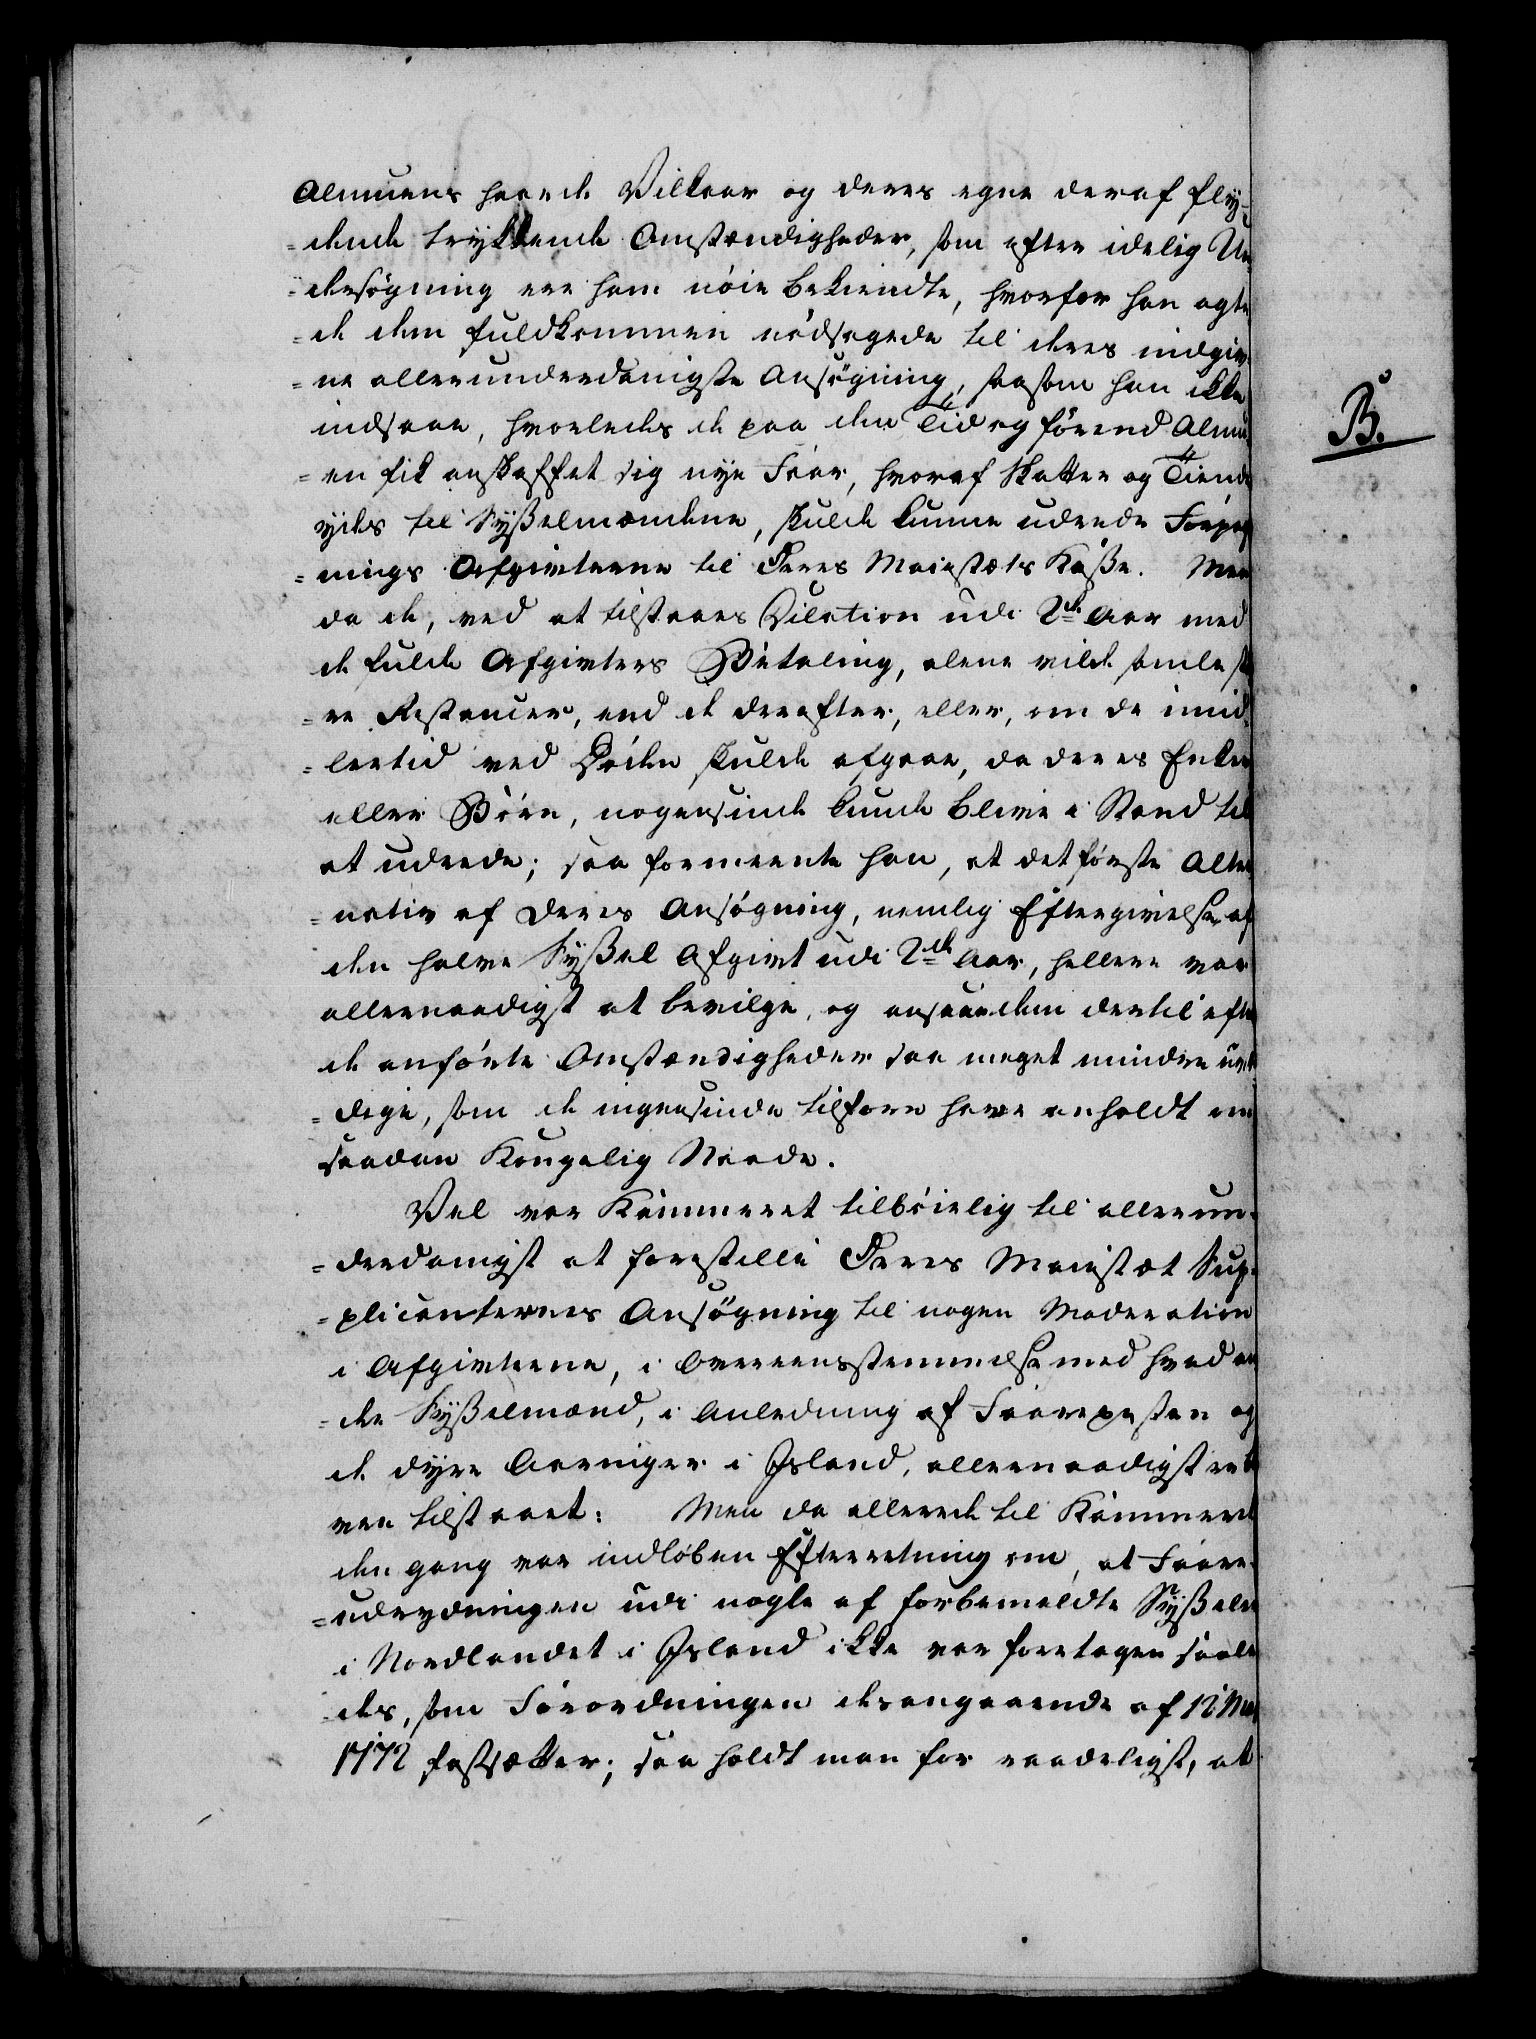 Almuens haarde Vilkaar og deres egne deraf fly-
=dende trykkende Omstændigheder, som efter idelig Un-
=dersøgning ere ham nøie bekiendte, hvorfor han agte
=de dem fuldkommen nødsagede til deres indgiv
=ne allerunderdanigste Ansøgning, saasom han ikke
indsaae, hvorledes de paa den Tid og førend Almu
=en fik anskaffet sig nye Faar, hvoraf Skatter og Tiende
ydes til Sysselmændene, skulde kunne udrede Forpag
=nings Afgivterne til Deres Maiestæts Kasse. Men
da de, ved at tilstaaes Dilation udi 2de Aar med
de fulde Afgivters Betaling, alene vilde samle stø
=re Restancer, end de derefter, eller, om de imid-
=lertid ved Døden skulde afgaae, da deres Enker
eller Børn, nogensinde kunde blive i Stand til
at udrede; saa formeente han, at det første Alter
=nativ af deres Ansøgning, nemlig Eftergivelse af
den halve Syssel Afgivt udi 2de Aar, hellere var
allernaadigst at bevilge, og ansaae dem dertil efter
de anførte Omstændigheder saa meget mindre uvær
=dige, som de ingensinde tilforn have anholdt om
saadan Kongelig Naade.
Vel var Kammeret tilbøielig til allerun-
=derdanigst at forestille Deres Maiestæt Sup-
=plicanternes Ansøgning til nogen Moderation
i Afgivterne, i Overeensstemmelse med hvad an
=dre Sysselmænd, i Anledning af Faarepesten og
de dyre Aaringer i Island, allernaadigst er ble
ven tilstaaet: Men da allerede til Kammeret
den gang var indløben Efterretning om, at Faare-
=udrydningen udi nogle af forbemeldte Sysseler
i Nordlandet i Island ikke var foretagen saale
=des, som Forordningen desangaaende af 12 Mai
1772 fastsætter; saa holdt man for raadeligst, at
B.